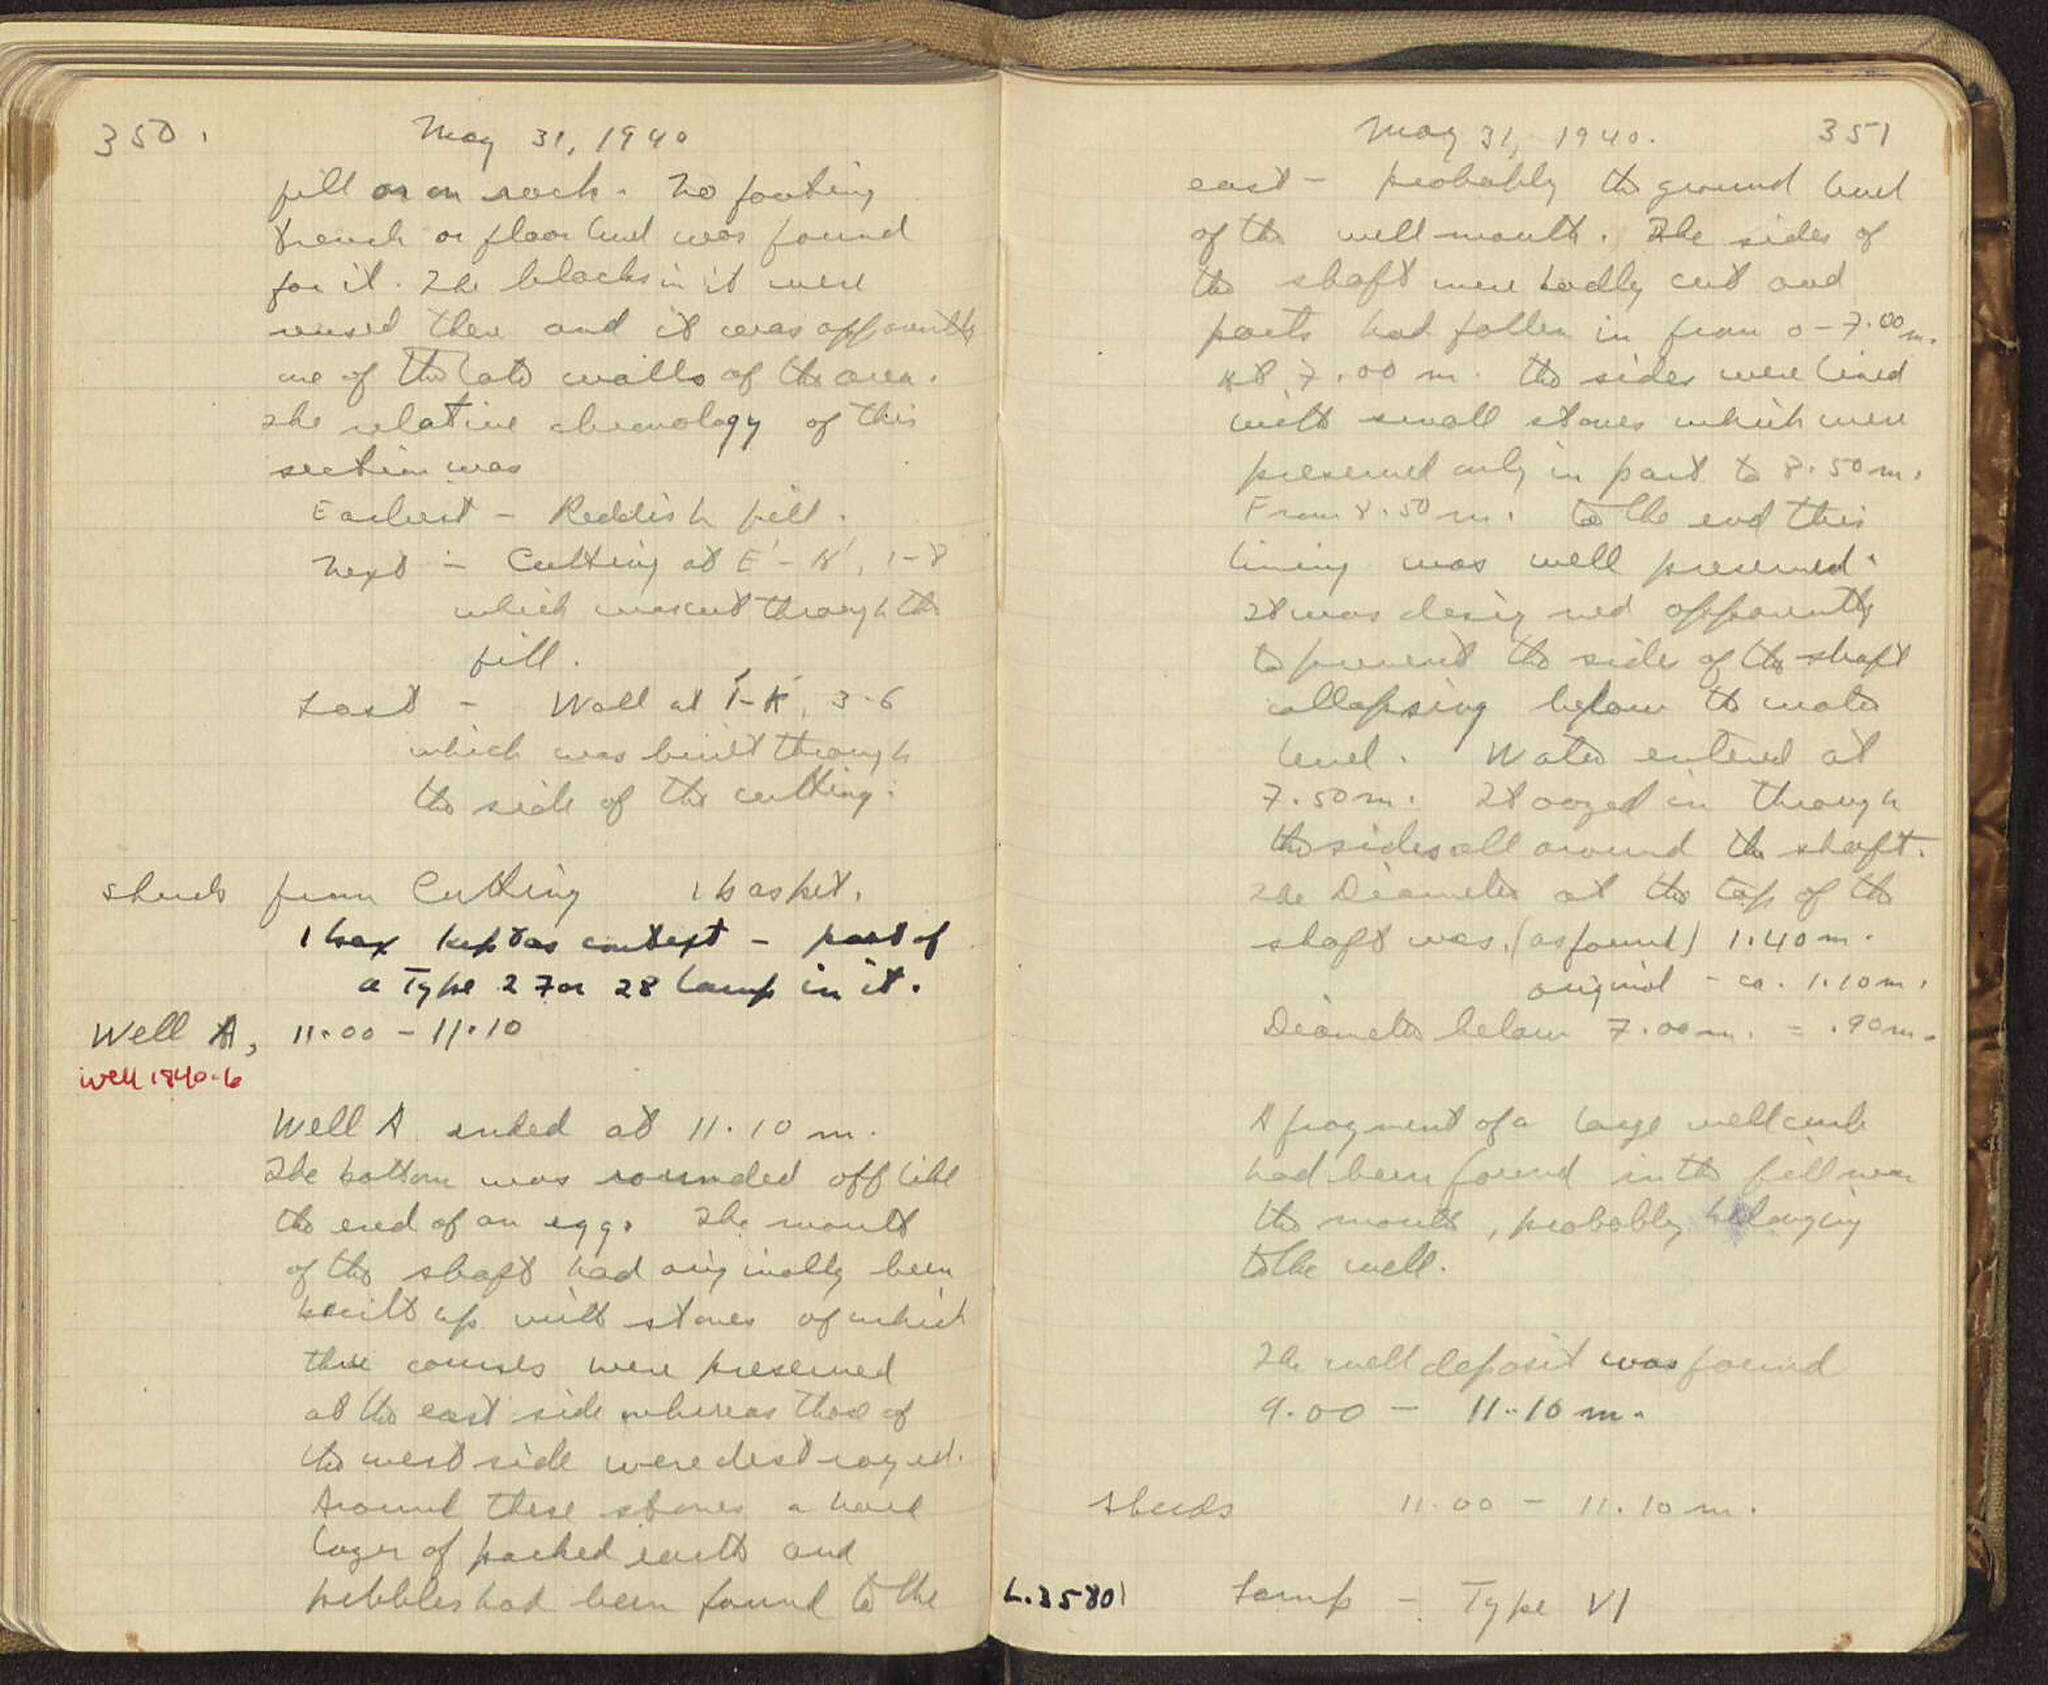 350.
May 31, 1940
fill or on rock. No footing
trench or floor level was found
for it. The blocks in it were
reused then and it was apparently
one of the late walls of the area.
The relative chronology of this
section was
Earliest - Reddish fill.
Next - Cutting at E' - K', 1-8
which was cut through the
fill.
Last - Wall at I'-K', 3-6
which was built through
the side of the cutting.
sherds from Cutting 1 basket.
1 box kept as context - part of
a Type 27 or 28 lamp in it.
Well A, 11.00 - 11.10
well 1940-6
Well A ended at 11.10 m.
The bottom was rounded off like
the end of an egg. The mouth
of the shaft had originally been
built up with stones of which
three courses were preserved
at the east side whereas those of
the west side were destroyed.
Around these stones a hard
layer of packed earth and
pebbles had been found to the
May 31, 1940.
351
east - probably the ground level
of the well mouth. The sides of
the shaft were badly cut and
parts had fallen in from 0 - 7.00 m.
At 7.00 m. the sides were lined
with small stones which were
preserved only in part to 8.50 m.
From 8.50 m. to the end this
lining was well preserved.
It was designed apparently
to prevent the side of the shaft
collapsing below the water
level. Water entered at
7.50 m. It oozed in through
the sides all around the shaft.
The Diameter at the top of the
shaft was (as found) 1.40 m.
original - ca. 1.10 m.
Diameter below 7.00 m. = .90 m.
A fragment of a large well curb
had been found in the fill near
the mouth, probably belonging
to the well.
The well deposit was found
9.00 - 11.10 m.
sherds 11.00 - 11.10 m.
L.3580 Lamp - Type VI